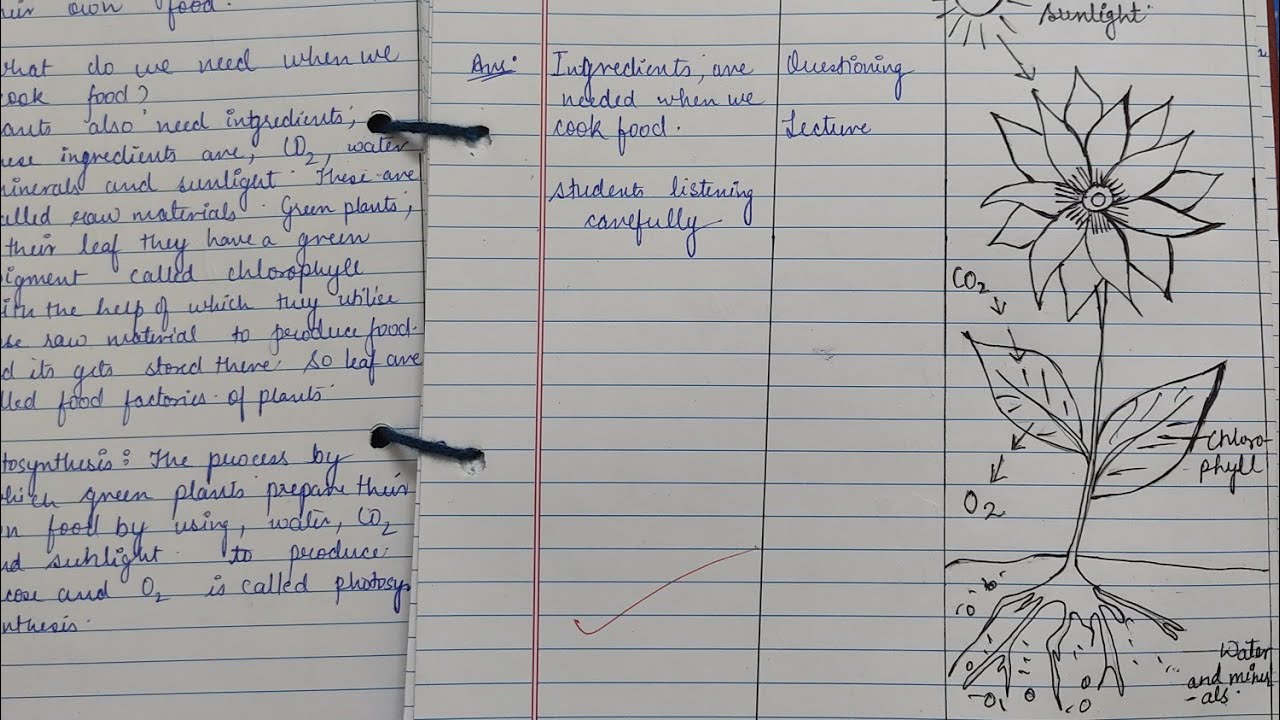 own food.
what do we need when we
cook food?
also need intgredients,
ingredients are, CO2, water
minerals and sunlight. These are
called raw materials. Green plants,
their leaf they have a green
pigment called chlorophyll
with the help of which they utilise
raw material to produce food.
its gets stored there. So leaf are
food factories of plants.
The process by
which green plants prepare their
food by using, water, CO2
sunlight to produce
and O2 is called photosy
nthesis.
Ans:
Intgredients, are
needed when we
cook food.
students listening
carefully
Questioning
Lecture
Sunlight.
CO2
O2
Chloro-
phyll
Water
and miner
-als.